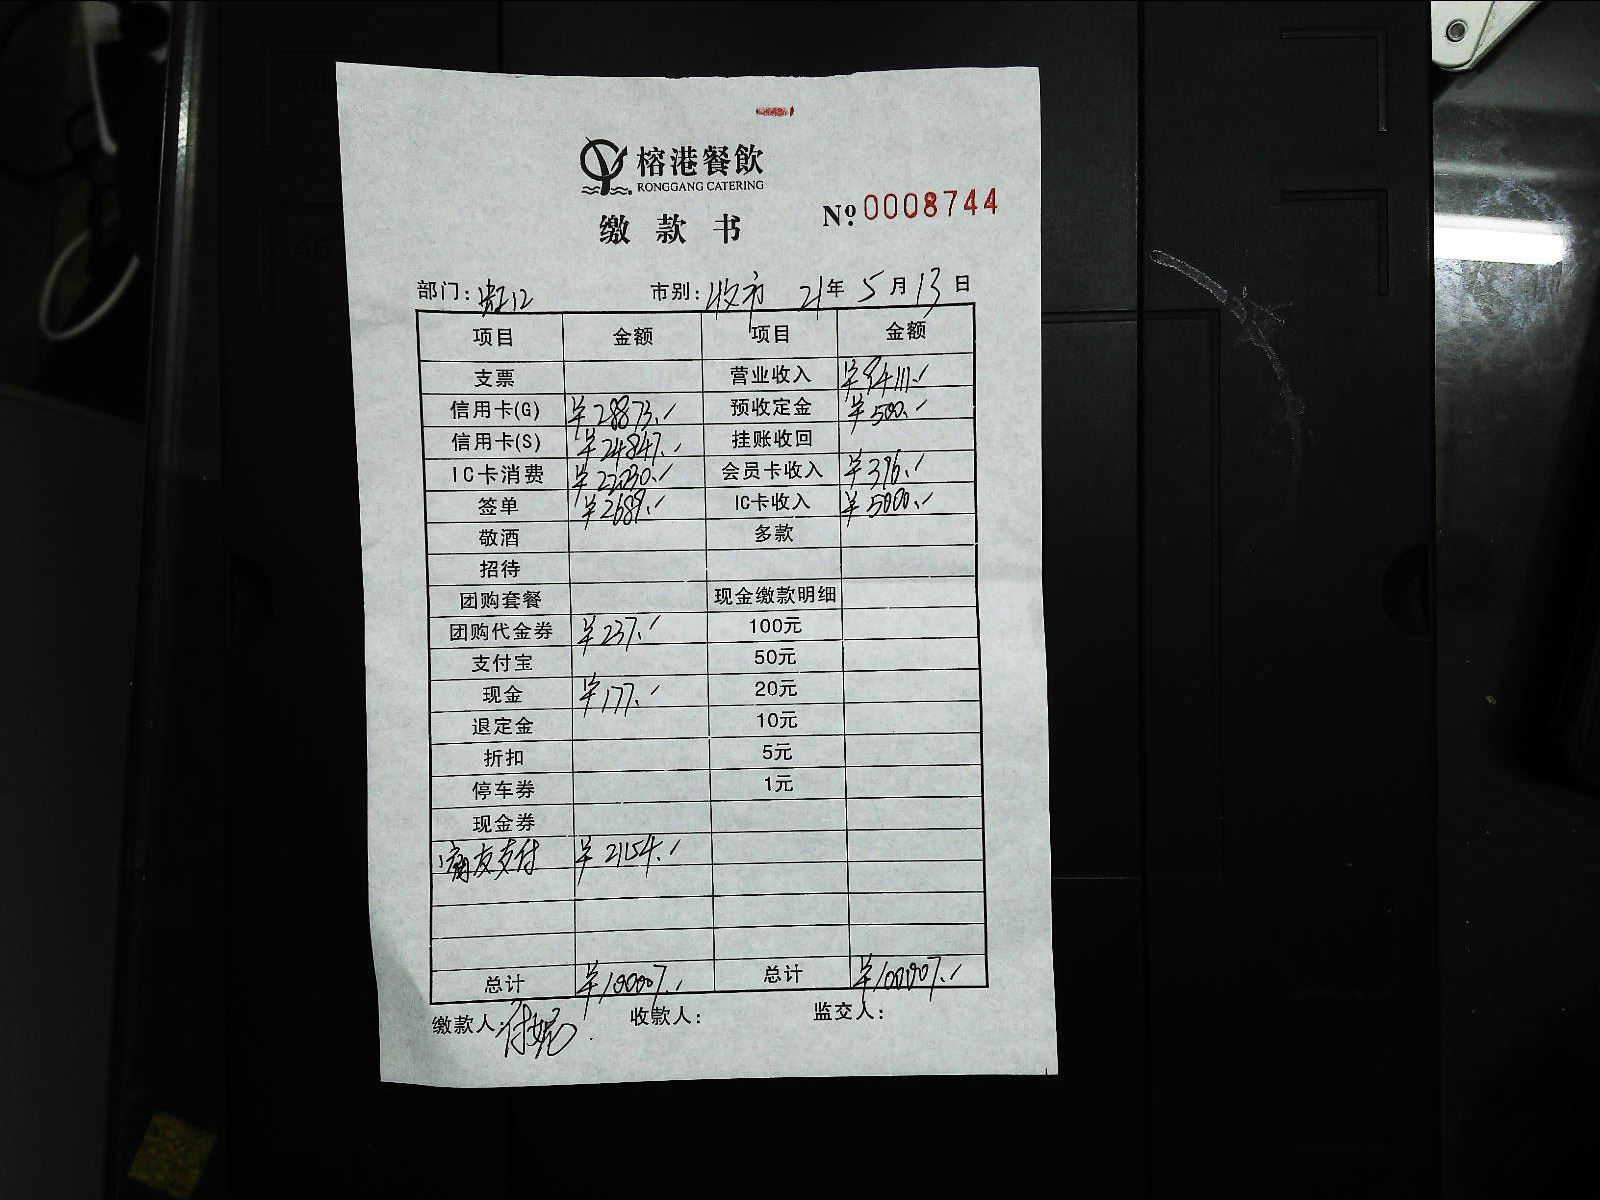 榕港餐飲
RONGGANG CATERING
缴款书
№ 0008744
部门: 虹口 市别: 收市 21年 5月 13日
项目 金额 项目 金额
支票 营业收入 ¥94111.
信用卡(G) ¥28873. 预收定金 ¥500.
信用卡(S) ¥24847. 挂账收回
IC卡消费 ¥22030. 会员卡收入 ¥396.
签单 ¥2689. IC卡收入 ¥5000.
敬酒 多款
招待
团购套餐 现金缴款明细
团购代金券 ¥237. 100元
支付宝 50元
现金 ¥177. 20元
退定金 10元
折扣 5元
停车券 1元
现金券
支付 ¥2154.
总计 ¥100007. 总计 ¥100007.
缴款人: 收款人: 监交人: